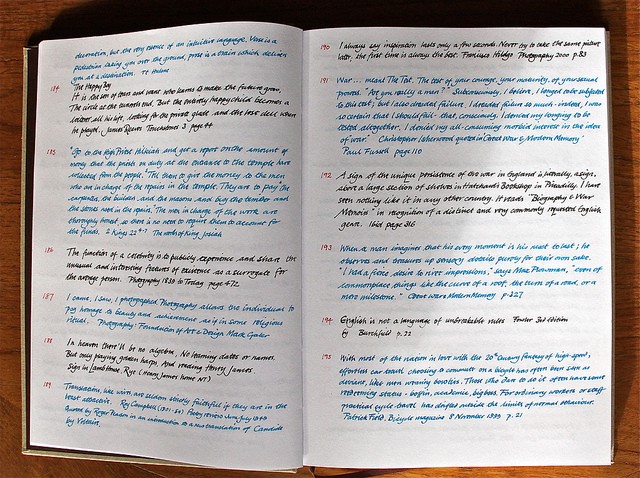 decoration, but the very essence of an intuitive language. Verse is a
pedestrian taking you over the ground, prose is a train which delivers
you at a destination. TE Hulme
184 The Happy Boy
It is red son of tears and wars, who learns to make the future grow,
The circle at the tunnel's end. But the merely happy child becomes a
loiterer all his life, looking for the private glade and the lost dell where
he played. James Reeves Touchstones 3 page 44
185 "Go to the High Priest Hilkiah and get a report on the amount of
money that the priests on duty at the entrance to the temple have
collected from the people. Tell them to give the money to the men
who are in charge of the repairs in the temple. They are to pay the
carpenters, the builders, and the masons and buy the timber and
the stones used in the repairs. The men in charge of the work are
thoroughly honest, so there is no need to require them to account for
the funds. 2 Kings 22 4-7 The words of King Josiah
186 The function of a celebrity is to publicly experience and share the
unusual and interesting features of existence as a surrogate for
the average person. Photography 1839 to Today page 472
187 I came, I saw, I photographed. Photography allows the individual to
pay homage to beauty and achievement, as if in some religious
ritual. Photography: Foundation of Art & Design Mark Galer
188 In heaven there'll be no algebra, No learning dates or names.
But only playing golden harps, And reading Henry James.
Sign in Lamb House, Rye (Henry James home NT)
189 Translations, like wives, are seldom strictly faithful if they are in the
least attractive. Roy Campbell (1901-57) Poetry review June/July 1949
Quoted by Roger Pearson in an introduction to a new translation of Candide
by Voltaire.
190 I always say inspiration lasts only a few seconds. Never try to take the same picture
later, the first time is always the best. Francisco Hidalgo Photography 2000 p.83
191 War... meant The Test. The test of your courage, your maturity, of your sexual
prowess. "Are you really a man?" Subconsciously, I believe, I longed to be subjected
to this test; but I also dreaded failure. I dreaded failure so much - indeed, I was
so certain that I should fail - that, consciously, I denied my longing to be
tested altogether. I denied my all-consuming morbid interest in the idea
of "war." Christopher Isherwood quoted in Great War & Modern Memory
Paul Fussell page 110
192 A sign of the unique persistence of the war in England is literally, a sign,
above a large section of shelves in Hatchards Bookshop in Piccadilly. I have
seen nothing like it in any other country. It reads "Biography & War
Memoirs" in recognition of a distinct and very commonly requested English
genre. Ibid page 316
193 When a man imagines that his every moment is his next to last, he
observes and treasures up sensory details purely for their own sake.
"I had a fierce desire to rivet impressions," says Max Plowman, "even of
commonplace things like the curve of a roof, the turn of a road, or a
mere milestone." Great War & Modern Memory p.327
194 English is not a language of unbreakable rules Fowler 3rd edition
by Burchfield p. 22
195 With most of the nation in love with the 20th Century fantasy of high-speed,
effortless car travel choosing to commute on a bicycle has often been seen as
deviant, like men wearing bonnets. Those who dare to do it often have some
redeeming status - boffin, academic, big beard. For ordinary workers or staff
practical cycle-travel has drifted outside the limits of normal behaviour.
Patrick Field, Bicycle magazine 8 November 1999 p. 21